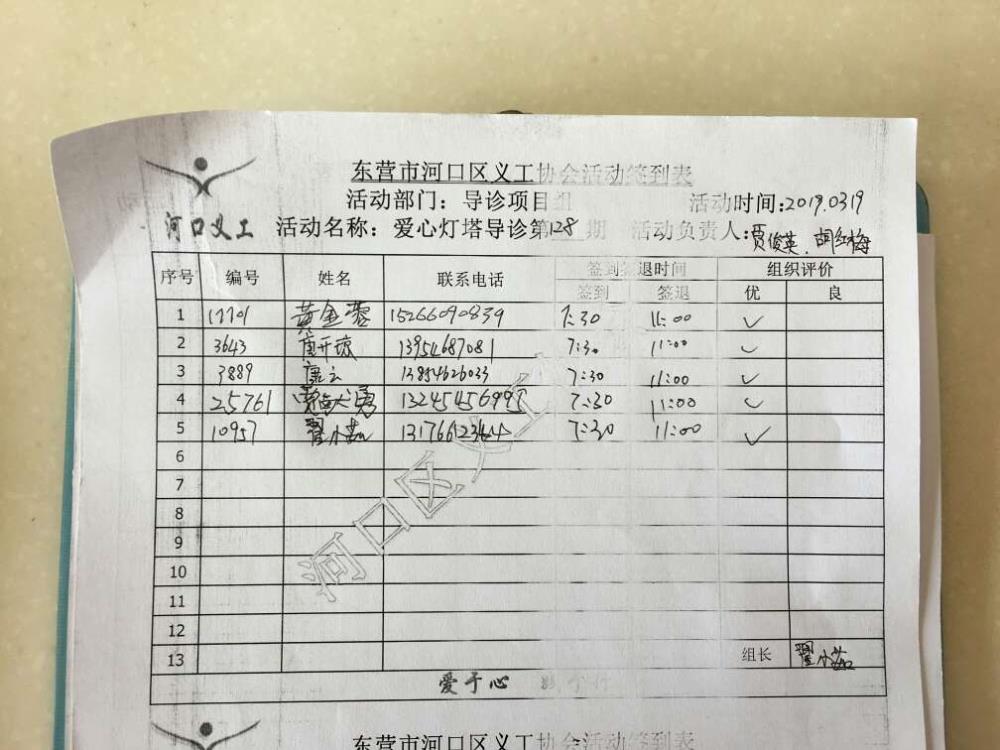 东营市河口区义工协会活动签到表
活动部门：导诊项目组 活动时间:2019.0319
河口义工 活动名称：爱心灯塔导诊第128期 活动负责人:贾俊英、胡红梅
序号 编号 姓名 联系电话 签到签退时间 组织评价
签到 签退 优 良
1 17701 黄金蓉 15266090839 7:30 11:00 ✓
2 3643 13954687081 7:30 11:00 ✓
3 3889 康云 13854626033 7:30 11:00 ✓
4 25761 7:30 11:00 ✓
5 10957 翟小茹 7:30 11:00 ✓
6
7
8
9
10
11
12
13 组长 翟小茹
爱于心
河口区义工
东营市河口区义工协会活动签到表